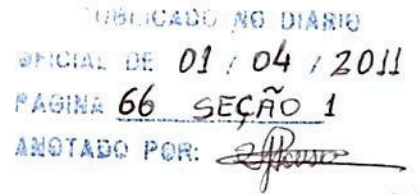 PUBLICADO NO DIÁRIO
OFICIAL DE 01 / 04 / 2011
PÁGINA 66 SEÇÃO 1
ANOTADO POR: